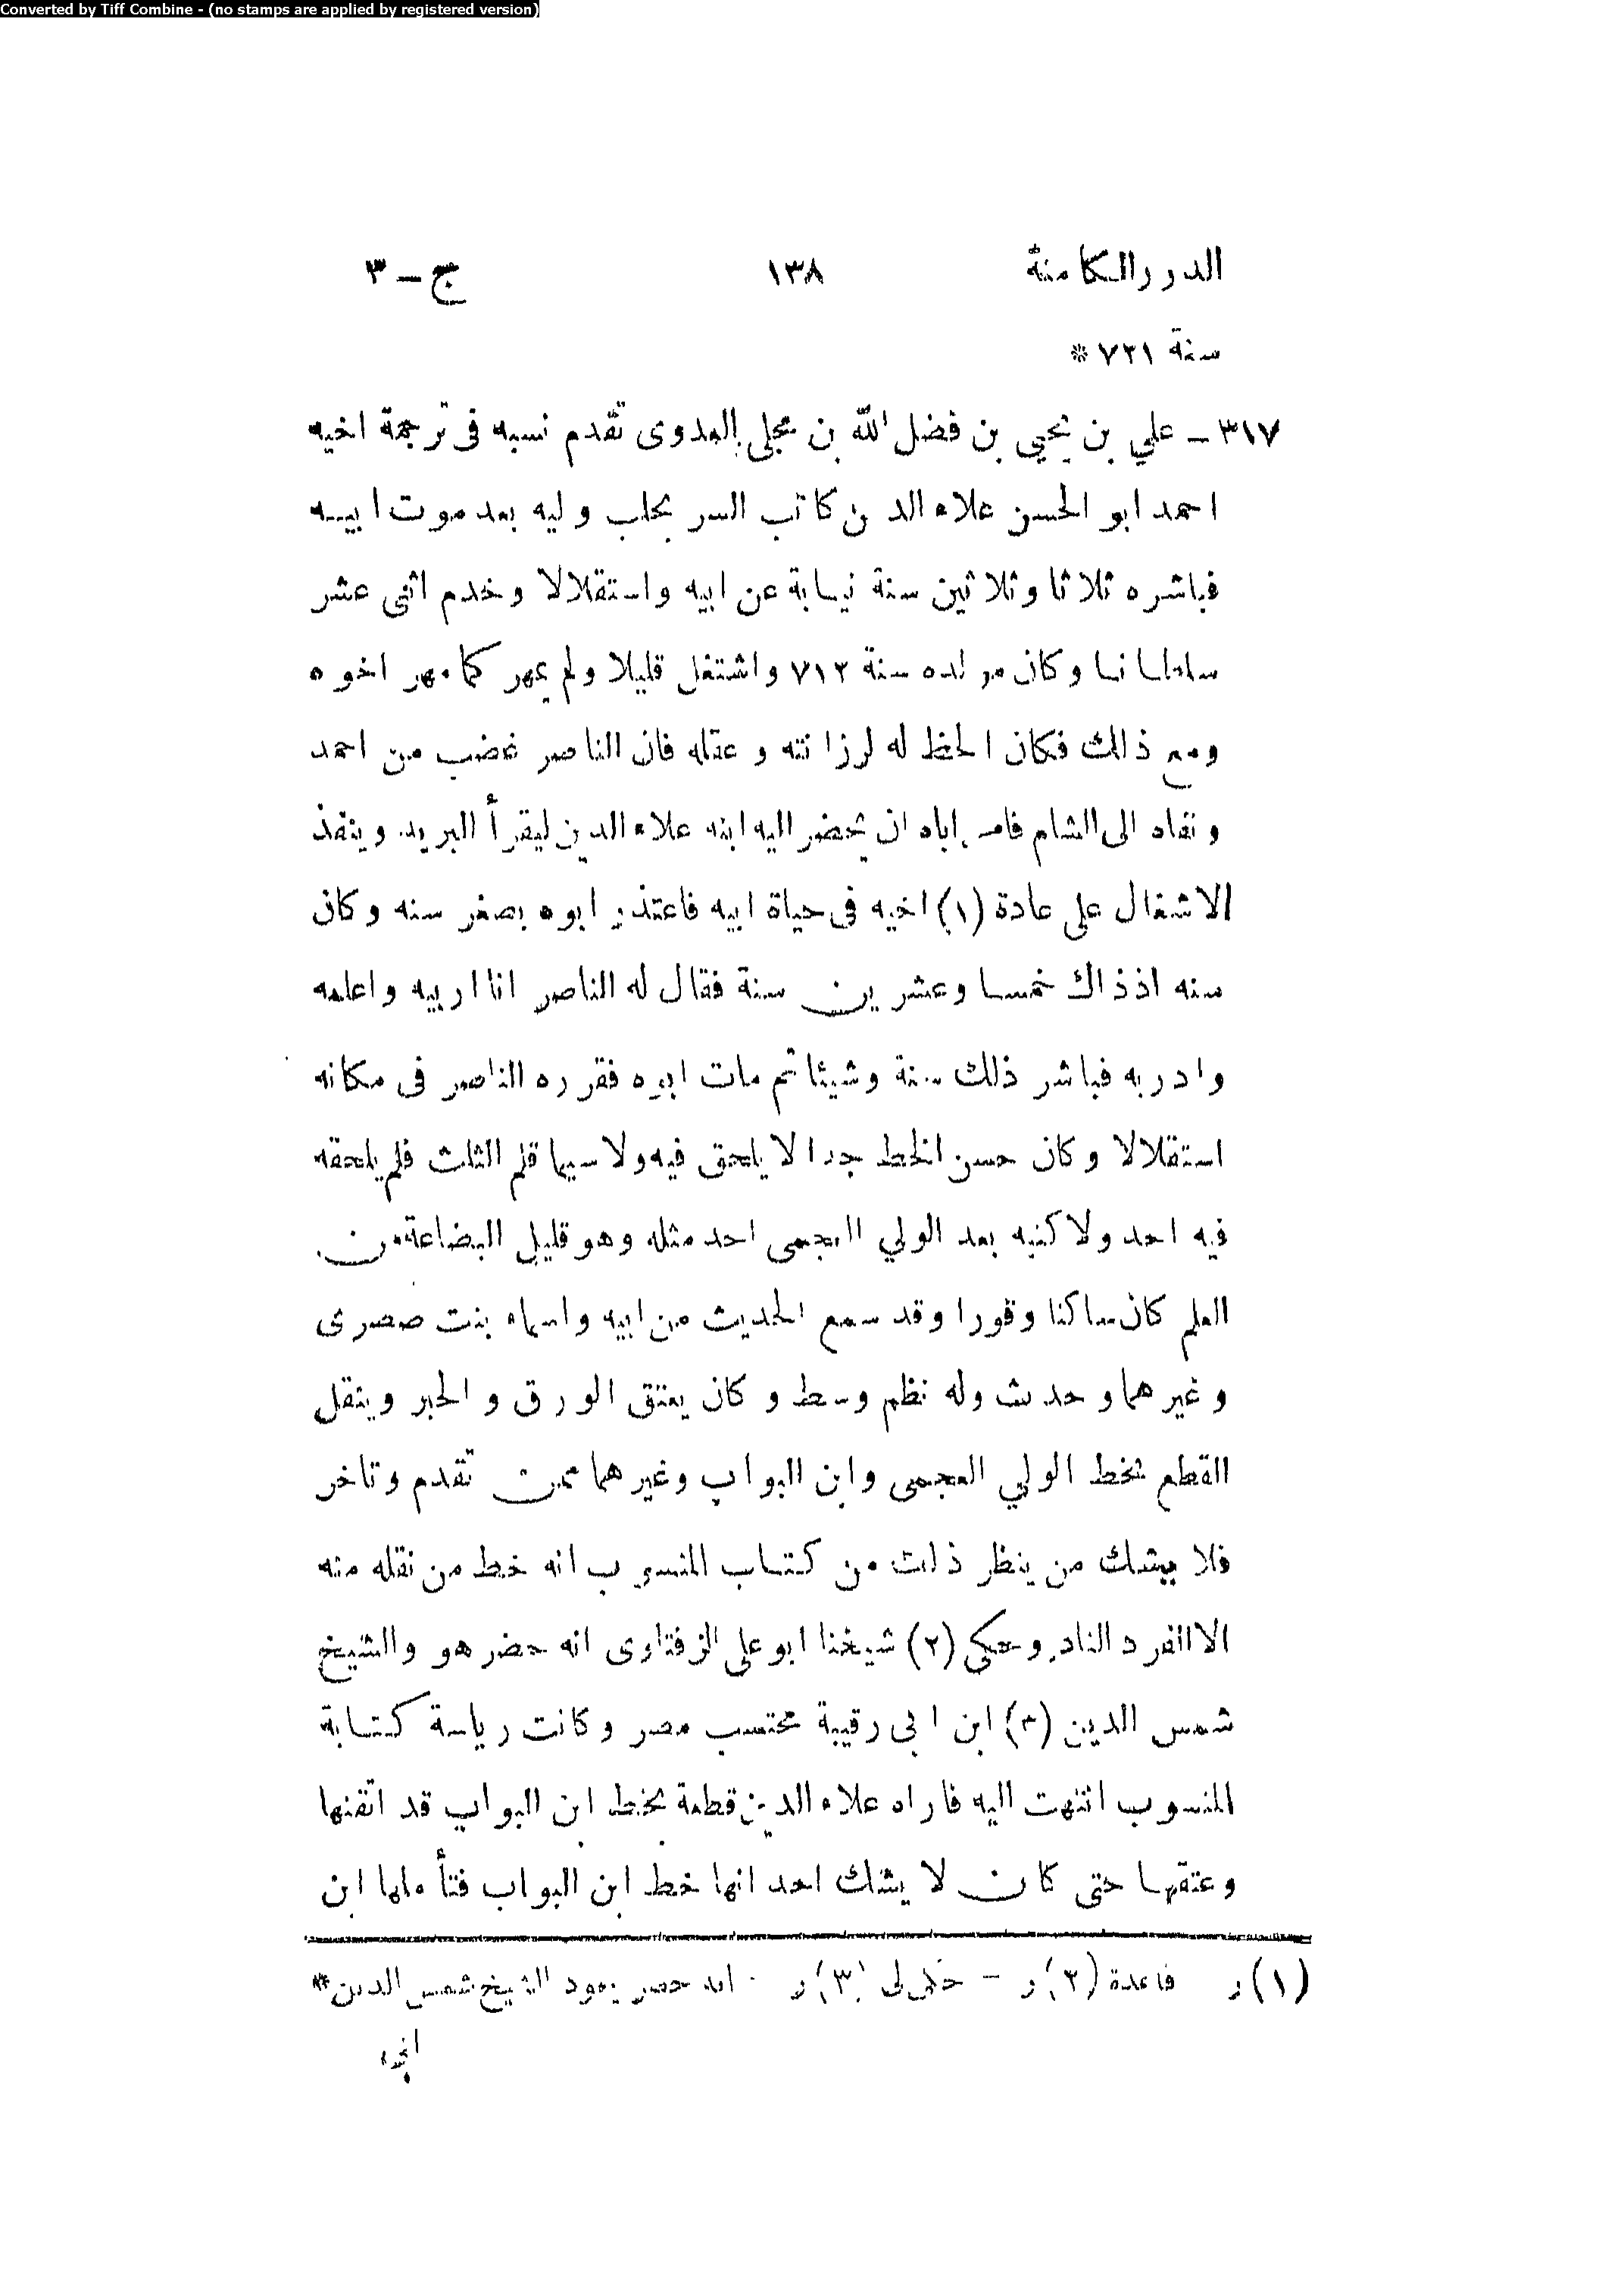 Converted by Tiff Combine - (no stamps are applied by registered version)
الدرر الكامنة ١٣٨ ج – ٣
سنة ٧٢١ *
٣١٧ – علي بن يحيى بن فضل الله بن مجلى العدوى تقدم نسبه فى ترجمة اخيه
احمد ابو الحسن علاء الدين كاتب السر بحلب وليه بعد موت ابيه
فباشره ثلاثا وثلاثين سنة نيابة عن ابيه واستقلالا وخدم اثنى عشر
سلطانا وكان مولده سنة ٧١٢ واشتغل قليلا ولم يمهر كما مهر اخوه
ومع ذلك فكان الحظ له لرزانته وعقله فان الناصر غضب من احمد
ونفاه الى الشام فامر اباه ان يحضر اليه ابنه علاء الدين ليقرأ البريد وينفذ
الاشغال على عادة (١) اخيه فى حياة ابيه فاعتذر ابوه بصغر سنه وكان
سنه اذ ذاك خمسا وعشرين سنة فقال له الناصر انا اربيه واعلمه
وادربه فباشر ذلك سنة وشيئا ثم مات ابوه فقرره الناصر فى مكانه
استقلالا وكان حسن الخط جدا لا يلحق فيه ولا سيما قلم الثلث فلم يلحقه
فيه احد ولا كتبه بعد الولي العجمى احد مثله وهو قليل البضاعة من
العلم كان ساكنا وقورا وقد سمع الحديث من ابيه واسماء بنت صصرى
وغيرهما وحدث وله نظم وسط وكان يعتق الورق والحبر وينقل
القطع بخط الولي العجمى وابن البواب وغيرهما ممن تقدم وتاخر
فلا يشك من ينظر ذلك من كتاب المنسوب انه خط من نقله منه
الا الفرد النادر وحكى (٢) شيخنا ابو على الزفتاوى انه حضر هو والشيخ
شمس الدين (٣) ابن ابى رقيبة محتسب مصر وكانت رياسة كتابة
المنسوب انتهت اليه فاراه علاء الدين قطعة بخط ابن البواب قد اتقنها
وعتقها حتى كان لا يشك احد انها خط ابن البواب فتأملها ابن
(١) ر قاعدة (٢) ر – حكى لى (٣) ر انه حضر الشيخ شمس الدين *